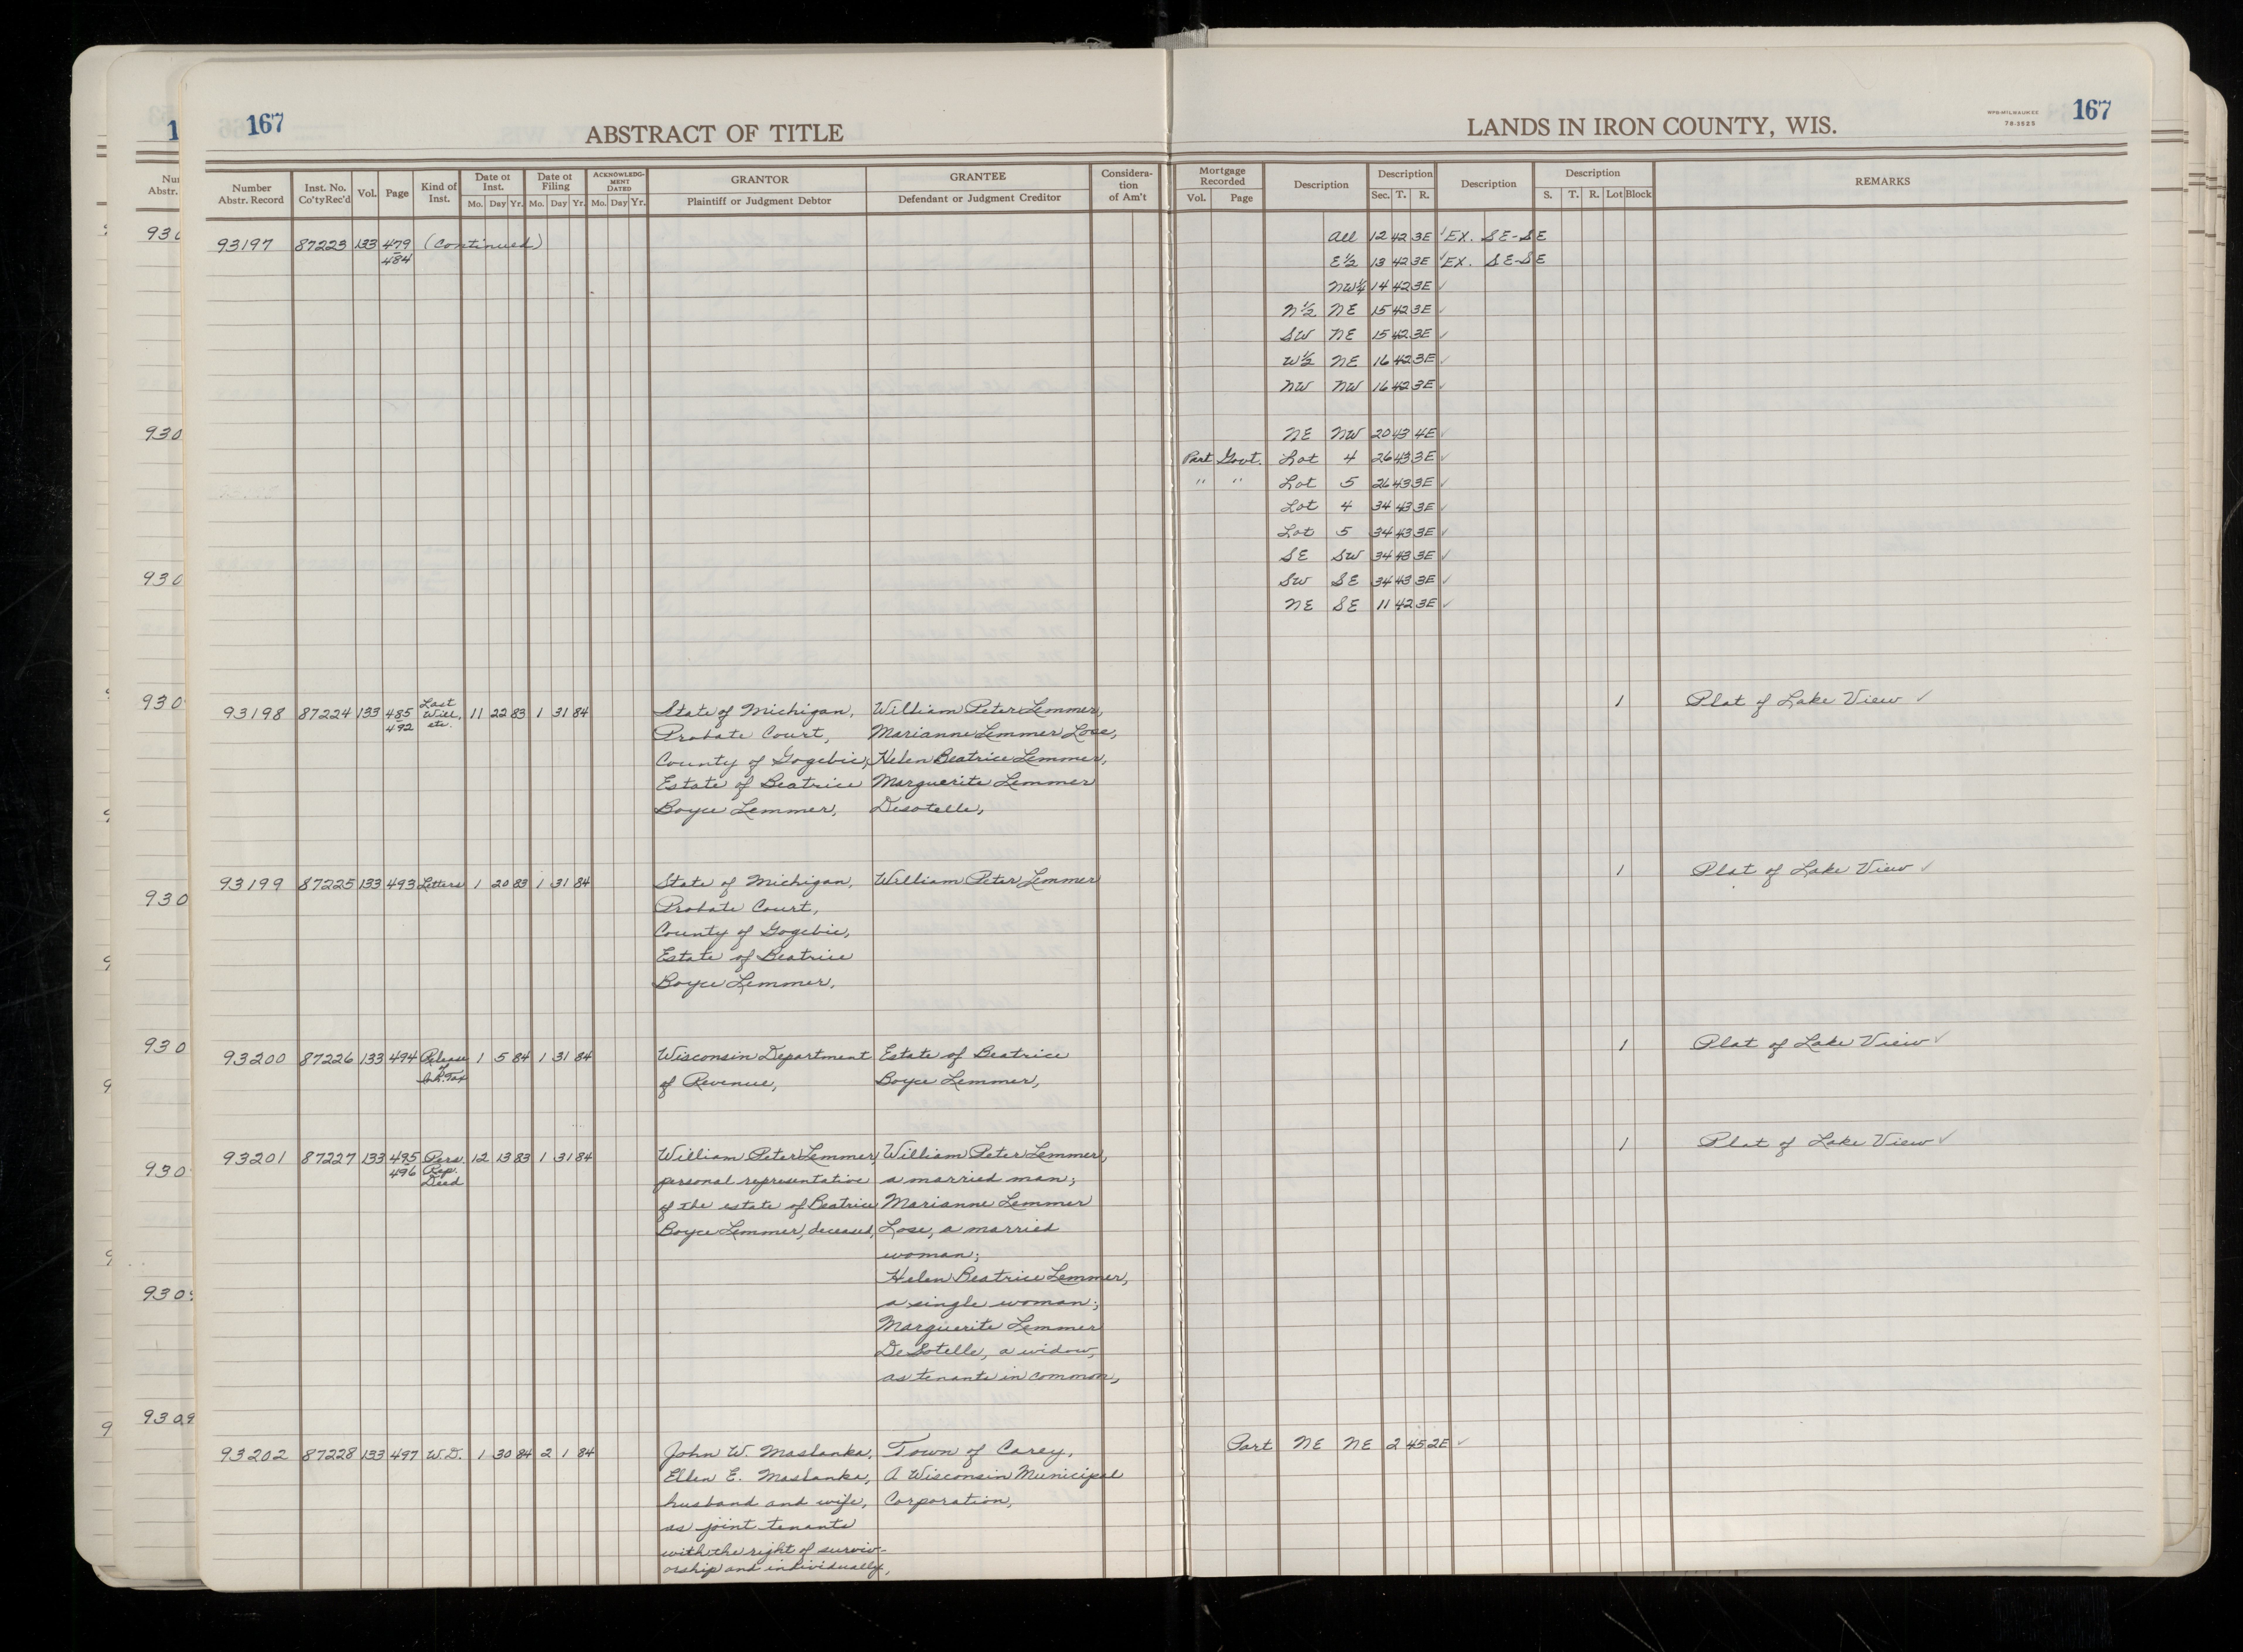 167
ABSTRACT OF TITLE
LANDS IN IRON COUNTY, WIS.
WPG-MILWAUKEE
78-3525
167
Number Abstr. Record | Inst. No. Co'ty Rec'd | Vol. | Page | Kind of Inst. | Date of Inst. Mo. Day Yr. | Date of Filing Mo. Day Yr. | ACKNOWLEDGMENT DATED Mo. Day Yr. | GRANTOR Plaintiff or Judgment Debtor | GRANTEE Defendant or Judgment Creditor | Consideration of Am't | Mortgage Recorded Vol. Page | Description | Description Sec. T. R. | Description | Description S. T. R. Lot Block | REMARKS
93197 87223 133 479 (Continued) All 12 42 3E ✓ EX. SE-SE
484 E½ 13 42 3E ✓ EX. SE-SE
NW¼ 14 42 3E ✓
N½ NE 15 42 3E ✓
SW NE 15 42 3E ✓
W½ NE 16 42 3E ✓
NW NW 16 42 3E ✓
NE NW 20 43 4E ✓
Part Govt. Lot 4 26 43 3E ✓
" " Lot 5 26 43 3E ✓
Lot 4 34 43 3E ✓
Lot 5 34 43 3E ✓
SE SW 34 43 3E ✓
SW SE 34 43 3E ✓
NE SE 11 42 3E ✓
93198 87224 133 485-492 Last Will, etc. 11 22 83 1 31 84 State of Michigan, William Peter Lemmer, 1 Plat of Lake View ✓
Probate Court, Marianne Lemmer Lose,
County of Gogebic, Helen Beatrice Lemmer,
Estate of Beatrice Marguerite Lemmer
Boyce Lemmer, Desotelle,
93199 87225 133 493 Letters 1 20 83 1 31 84 State of Michigan, William Peter Lemmer 1 Plat of Lake View ✓
Probate Court,
County of Gogebic,
Estate of Beatrice
Boyce Lemmer,
93200 87226 133 494 Release of Inh. Tax 1 5 84 1 31 84 Wisconsin Department Estate of Beatrice 1 Plat of Lake View ✓
of Revenue, Boyce Lemmer,
93201 87227 133 495 496 Pers. Rep. Deed 12 13 83 1 31 84 William Peter Lemmer, William Peter Lemmer, 1 Plat of Lake View ✓
personal representative a married man;
of the estate of Beatrice Marianne Lemmer
Boyce Lemmer, deceased, Lose, a married
woman;
Helen Beatrice Lemmer,
a single woman;
Marguerite Lemmer
DeSotelle, a widow,
as tenants in common,
93202 87228 133 497 W.D. 1 30 84 2 1 84 John W. Maslanka, Town of Carey, Part NE NE 2 45 2E ✓
Ellen E. Maslanka, A Wisconsin Municipal
husband and wife, Corporation,
as joint tenants
with the right of surviv-
orship and individually,